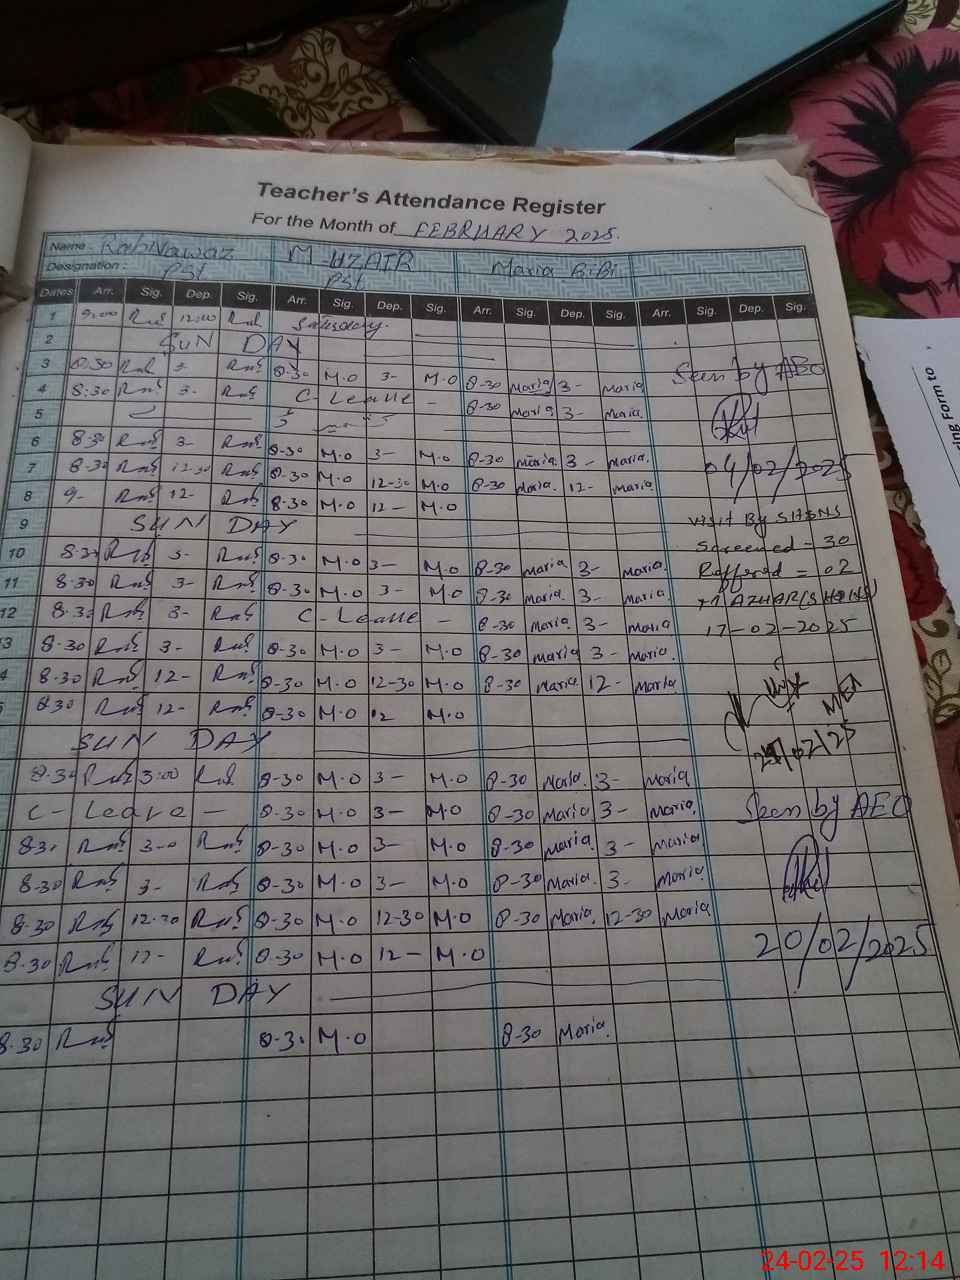 Teacher's Attendance Register
For the Month of FEBRUARY 2025.
Name: RabNawaz M-UZAIR Maria BiBi
Designation: PSt PSt
Dates Arr. Sig. Dep. Sig. Arr. Sig. Dep. Sig. Arr. Sig. Dep. Sig. Arr. Sig. Dep. Sig.
1 9:00 12:00 Saturday.
2 SUN DAY
3 8.30 3- 8-30 M.O 3- M.O 8-30 Maria 3- Maria Seen by AEO
4 8.30 3- C- Leave - 8-30 Maria. 3- Maria.
5 5 5
6 8.30 3- 8-30 M.O 3- M.O 8-30 Maria 3- Maria.
7 8.30 12-30 8-30 M.O 12-30 M.O 8-30 Maria. 12- Maria. 04/02/2025
8 9- 12- 8-30 M.O 12- M.O
9 SUN DAY Visit By SH&NS
10 8.30 3- 8-30 M.O 3- M.O 8-30 Maria 3- Maria. Screened - 30
11 8.30 3- 8-30 M.O 3- M.O 8-30 Maria. 3- Maria. Reffered = 02
12 8.30 3- C- Leave - 8-30 Maria. 3- Maria AZHAR (SH&NS)
3 8-30 3- 8-30 M.O 3- M.O 8-30 Maria 3- Maria. 17-02-2025
4 8.30 12- 8-30 M.O 12-30 M.O 8-30 Maria. 12- Maria
8.30 12- 8-30 M.O 12 M.O MEA
SUN DAY /02/25
8.30 3:00 8-30 M.O 3- M.O 8-30 Maria. 3- Maria
C- Leave - 8-30 M.O 3- M.O 8-30 Maria 3- Maria Seen by AEO
8-3 3-0 8-30 M.O 3- M.O 8-30 Maria. 3- Maria.
8-30 3- 8-30 M.O 3- M.O 8-30 Maria. 3- Maria.
8-30 12-30 8-30 M.O 12-30 M.O 8-30 Maria. 12-30 Maria
8.30 12- 8-30 M.O 12- M.O 20/02/2025
SUN DAY
8.30 8-3 M.O 8-30 Maria.
ing Form to
24-02-25 12:14